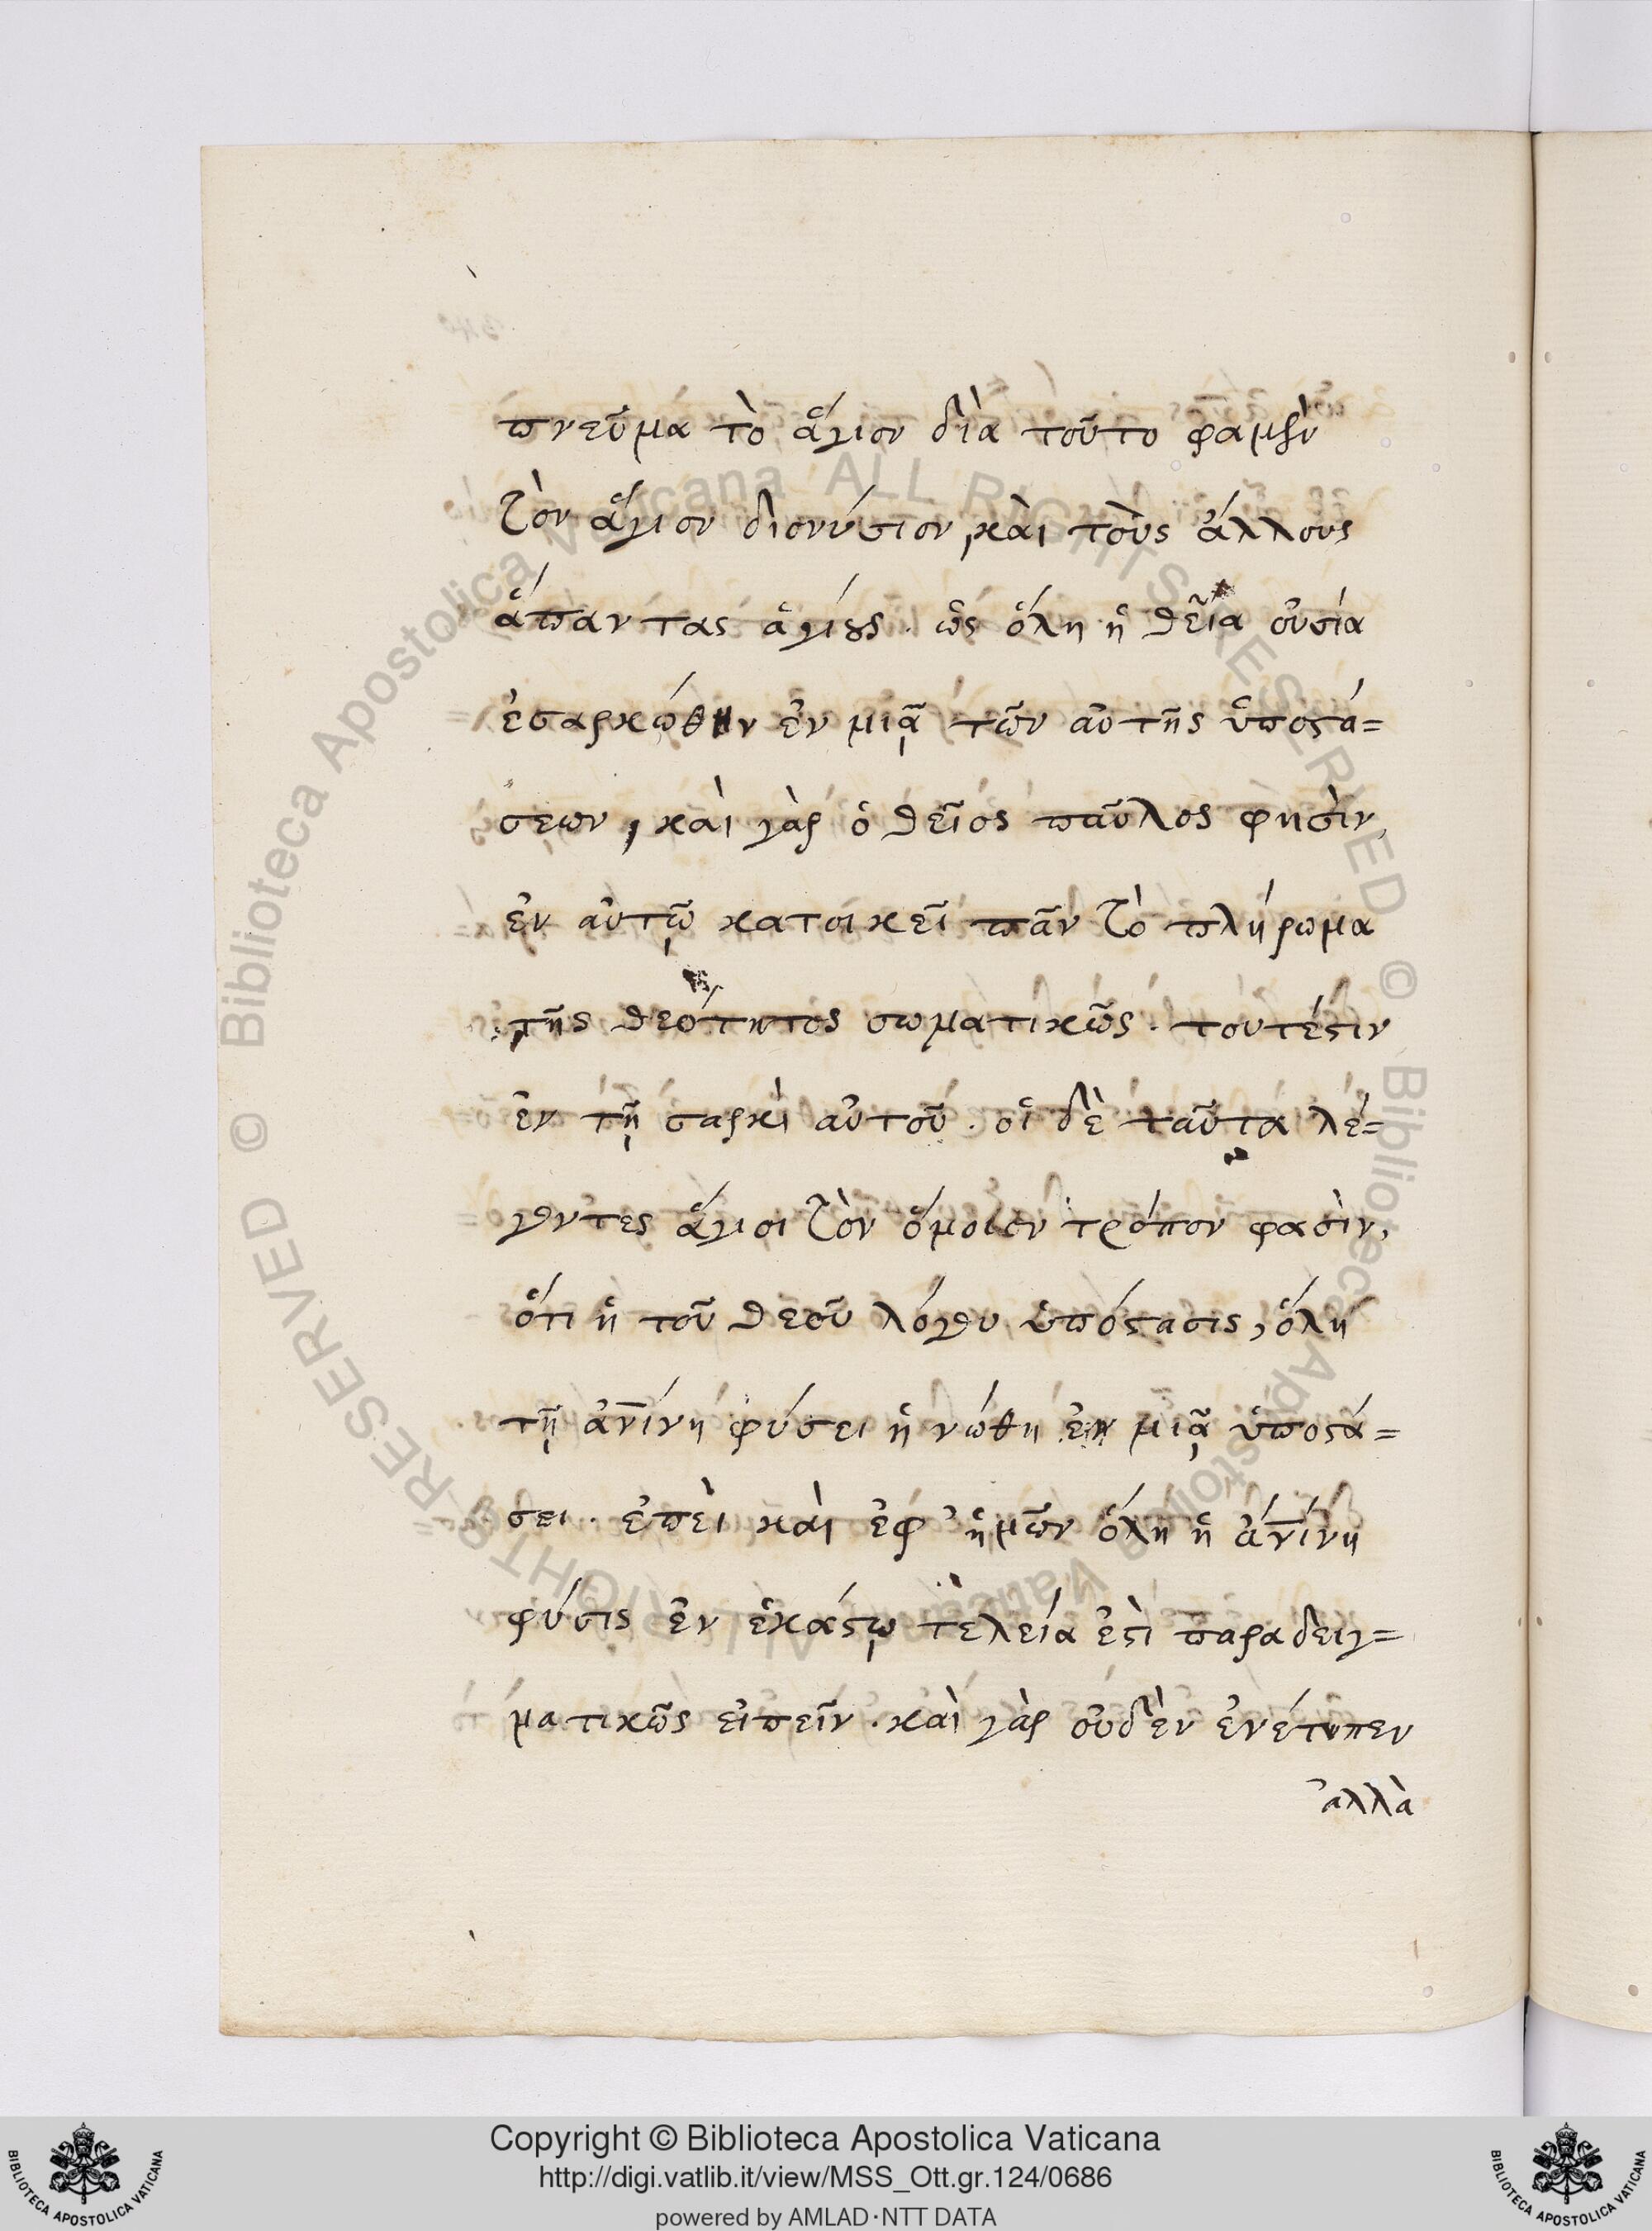 πνεῦμα τὸ ἅγιον διὰ τοῦτο φαμὲν
τὸν ἅγιον διονύσιον, καὶ τοὺς ἄλλους
ἅπαντας ἁγίους. ὡς ὅλη ἡ θεῖα οὐσία
ἐσαρκώθην ἐν μιᾷ τῶν αὐτῆς ὑποστά=
σεων, καὶ γὰρ ὁ θεῖος παῦλος φησὶν,
ἐν αὐτῷ κατοικεῖ πᾶν τὸ πλήρωμα
τῆς θεότητος σωματικῶς. τουτέστιν
ἐν τῇ σαρκὶ αὐτοῦ. οἱ δὲ ταῦτα λέ=
γοντες ἅγιοι τὸν ὅμοιον τρόπον φασὶν,
ὅτι ἡ τοῦ θεοῦ λόγου ὑπόστασις, ὅλη
τῇ ἀνίνη φύσει ἡνώθη ἐν μιᾷ ὑποστά=
σει. ἐπεὶ καὶ ἐφ' ἡμῶν ὅλη ἡ ἀνίνη
φύσις ἐν ἑκάστῳ τελεία ἐστὶ παραδειγ=
ματικῶς εἰπεῖν. καὶ γὰρ οὐδὲν ἐνέτυπεν
ἀλλὰ
Copyright © Biblioteca Apostolica Vaticana
http://digi.vatlib.it/view/MSS_Ott.gr.124/0686
powered by AMLAD·NTT DATA
BIBLIOTECA APOSTOLICA VATICANA
BIBLIOTECA APOSTOLICA VATICANA
© Biblioteca Apostolica Vaticana ALL RIGHTS RESERVED
© Biblioteca Apostolica Vaticana ALL RIGHTS RESERVED